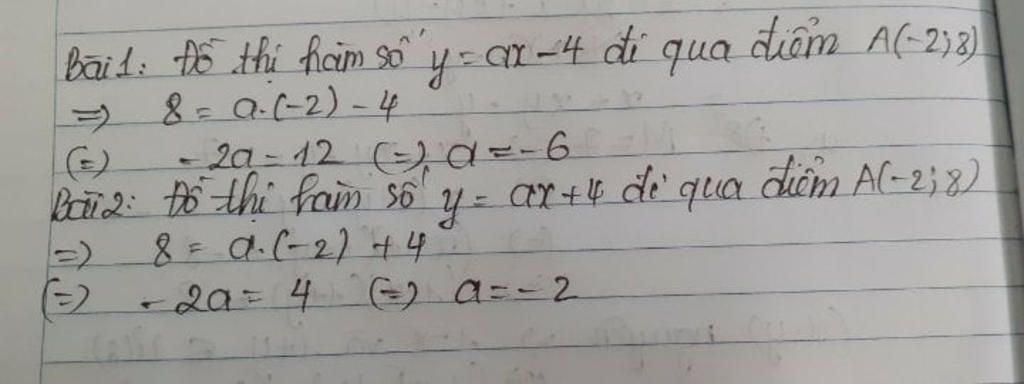 Bài 1: Đồ thị hàm số y = ax - 4 đi qua điểm A(-2; 8)
=> 8 = a.(-2) - 4
(=) - 2a = 12 (=) a = - 6
Bài 2: Đồ thị hàm số y = ax + 4 đi qua điểm A(-2; 8)
=> 8 = a.(-2) + 4
(=) - 2a = 4 (=) a = - 2